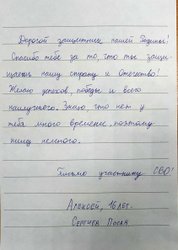 Дорогой защитник нашей Родины!
Спасибо тебе за то, что ты защи
щаешь нашу страну и Отечество!
Желаю успехов, победы и всего
наилучшего. Знаю, что нет у
тебя много времени, поэтому
пишу немного.
Письмо участнику СВО!
Алексей, 16 лет.
Сергиев Посад